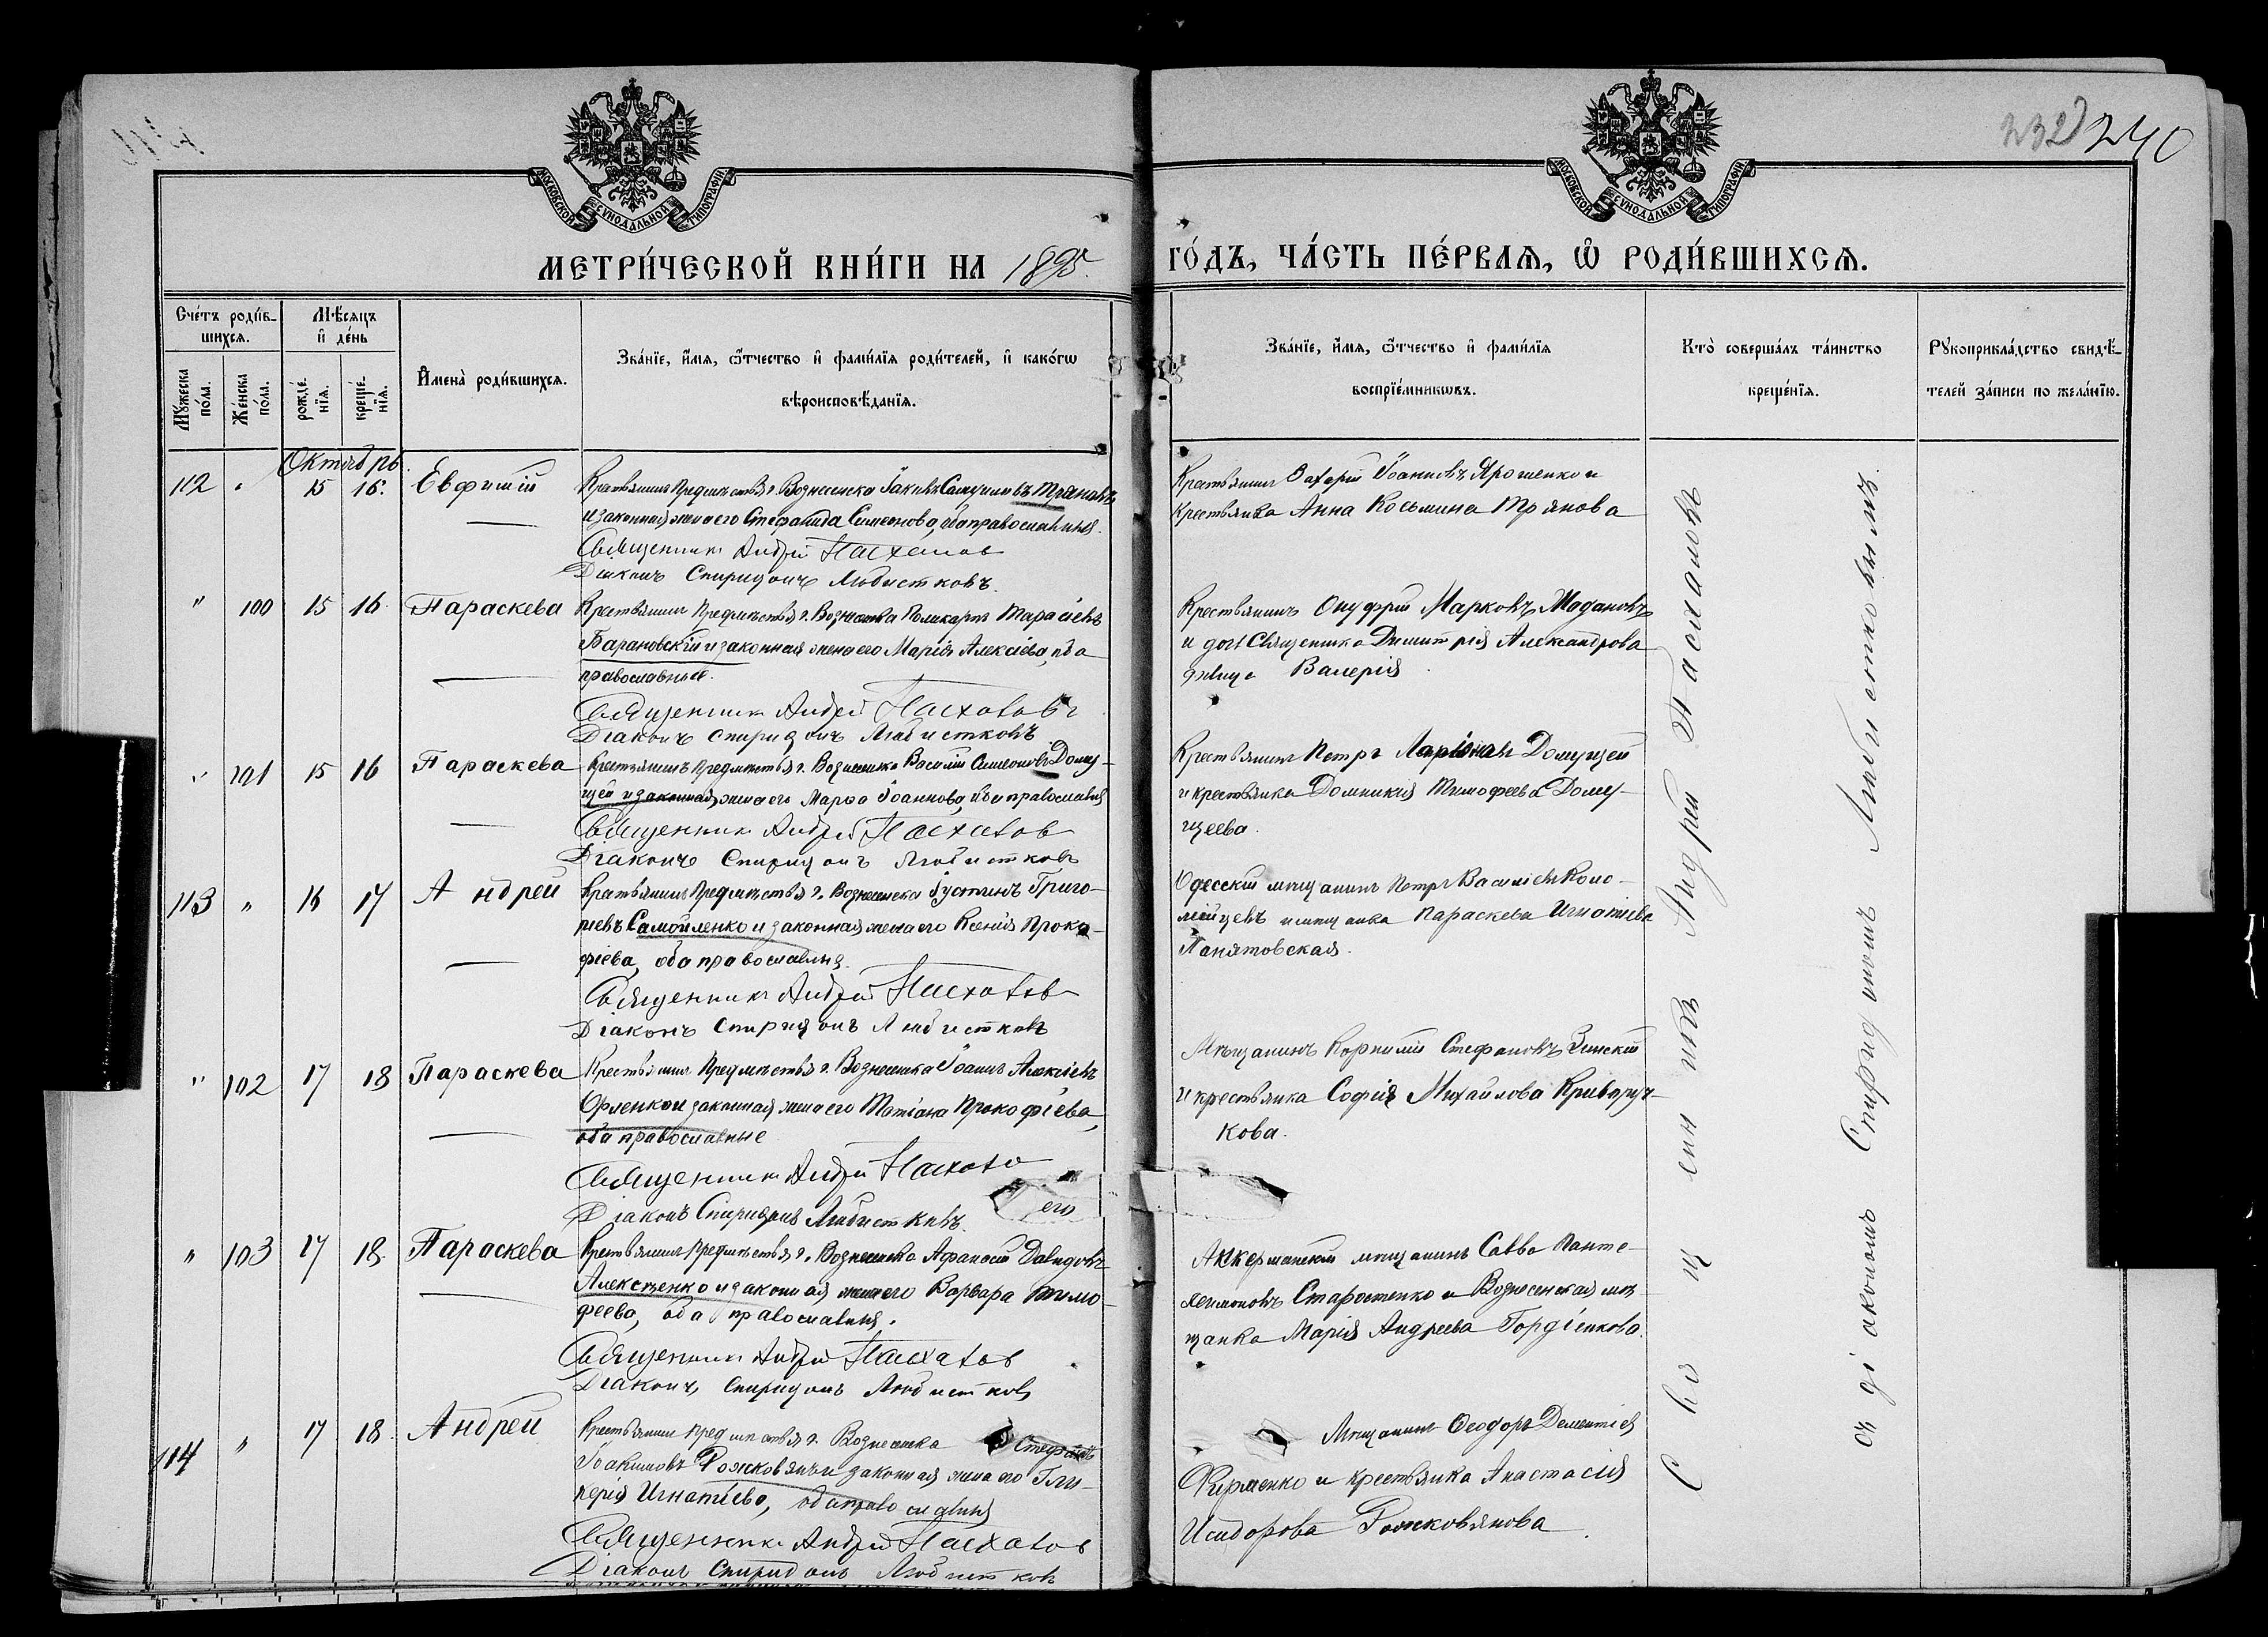 232 240
МОСКОВСКОЙ СУНОДАЛЬНОЙ ТИПОГРАФІИ
МОСКОВСКОЙ СУНОДАЛЬНОЙ ТИПОГРАФІИ
МЕТРИ́ЧЕСКОЙ КНИ́ГИ НА 1895. ГО́ДЪ, ЧА́СТЬ ПЕ́РВАѦ, Ѽ РОДИ́ВШИХСѦ.
Сче́тъ роди́в-
шихсѧ.
Мѣ́сѧцъ
и҆ де́нь
Мꙋ́жеска по́ла.
Же́нска по́ла.
рожде́-нїѧ.
креще́-нїѧ.
И҆мена̀ роди́вшихсѧ.
Зва́нїе, и҆́мѧ, ѻ҆́тчество и҆ фами́лїѧ роди́телей, и҆ како́гѡ
вѣроисповѣ́данїѧ.
Зва́нїе, и҆́мѧ, ѻ҆́тчество и҆ фами́лїѧ
воспрїе́мникѡвъ.
Кто̀ соверша́лъ та́инство
креще́нїѧ.
Рꙋкоприкла́дство свидѣ́-
телей за́писи по жела́нїю.
Октябрь.
112 " 15 16. Евфимій
Крестьянинъ Предмѣстья г. Вознесенска Іаковъ Самуиловъ Тряновъ
и законная жена его Стефанида Симеонова, оба православныя.
Священникъ Андрей Пасхаловъ
Діаконъ Спиридонъ Любистковъ.
Крестьянинъ Захарій Іоанновъ Ярошенко и
крестьянка Анна Косьмина Трянова
" 100 15 16 Параскева
Крестьянинъ Предмѣстья г. Вознесенска Поликарпъ Тарасіевъ
Барановскій и законная жена его Марія Алексіева, оба
православные.
Священникъ Андрей Пасхаловъ
Діаконъ Спиридонъ Любистковъ
Крестьянинъ Онуфрій Марковъ Мадановъ
и дочь Священника Димитрія Александрова
дѣвица Валерія
" 101 15 16 Параскева
Крестьянинъ Предмѣстья г. Вознесенска Василій Симеоновъ Дому-
щей и законная жена его Марѳа Іоаннова, оба православныя
Священникъ Андрей Пасхаловъ
Діаконъ Спиридонъ Любистковъ
Крестьянинъ Петръ Ларіоновъ Домущей
и крестьянка Домникія Тимофеева Дому-
щеева.
113 " 16 17 Андрей
Крестьянинъ Предмѣстья г. Вознесенска Іустинъ Григо-
ріевъ Самойленко и законная жена его Ксенія Проко-
фіева, оба православныя.
Священникъ Андрей Пасхаловъ
Діаконъ Спиридонъ Любистковъ
Одесскій мѣщанинъ Петръ Василіевъ Коло-
мійцевъ и мѣщанка Параскева Игнатіева
Понятовская.
" 102 17 18 Параскева
Крестьянинъ Предмѣстья г. Вознесенска Іоаннъ Алексіевъ
Орленко и законная жена его Татіана Прокофіева,
оба православные
Священникъ Андрей Пасхаловъ
Діаконъ Спиридонъ Любистковъ.
его
Мѣщанинъ Корнилій Стефановъ Зинскій
и крестьянка Софія Михайлова Криворуч-
кова.
" 103 17 18. Параскева
Крестьянинъ Предмѣстья г. Вознесенска Афанасій Давидовъ
Алексѣенко и законная жена его Варвара Тимо-
феева, оба православныя.
Священникъ Андрей Пасхаловъ
Діаконъ Спиридонъ Любистковъ
Аккерманскій мѣщанинъ Савва Панте-
леимоновъ Старостенко и Вознесенская мѣ-
щанка Марія Андреева Гордіенкова.
114 " 17 18. Андрей
Крестьянинъ предмѣстья г. Вознесенска Стефанъ
Іоакимовъ Рожковянъ и законная жена его Гли-
керія Игнатіева, оба православныя
Священникъ Андрей Пасхаловъ
Діаконъ Спиридонъ Любистковъ
Мѣщанинъ Ѳеодоръ Дементіевъ
Фирменко и крестьянка Анастасія
Исидорова Рожковянова.
Священникъ Андрей Пасхаловъ
съ діакономъ Спиридономъ Любистковымъ.